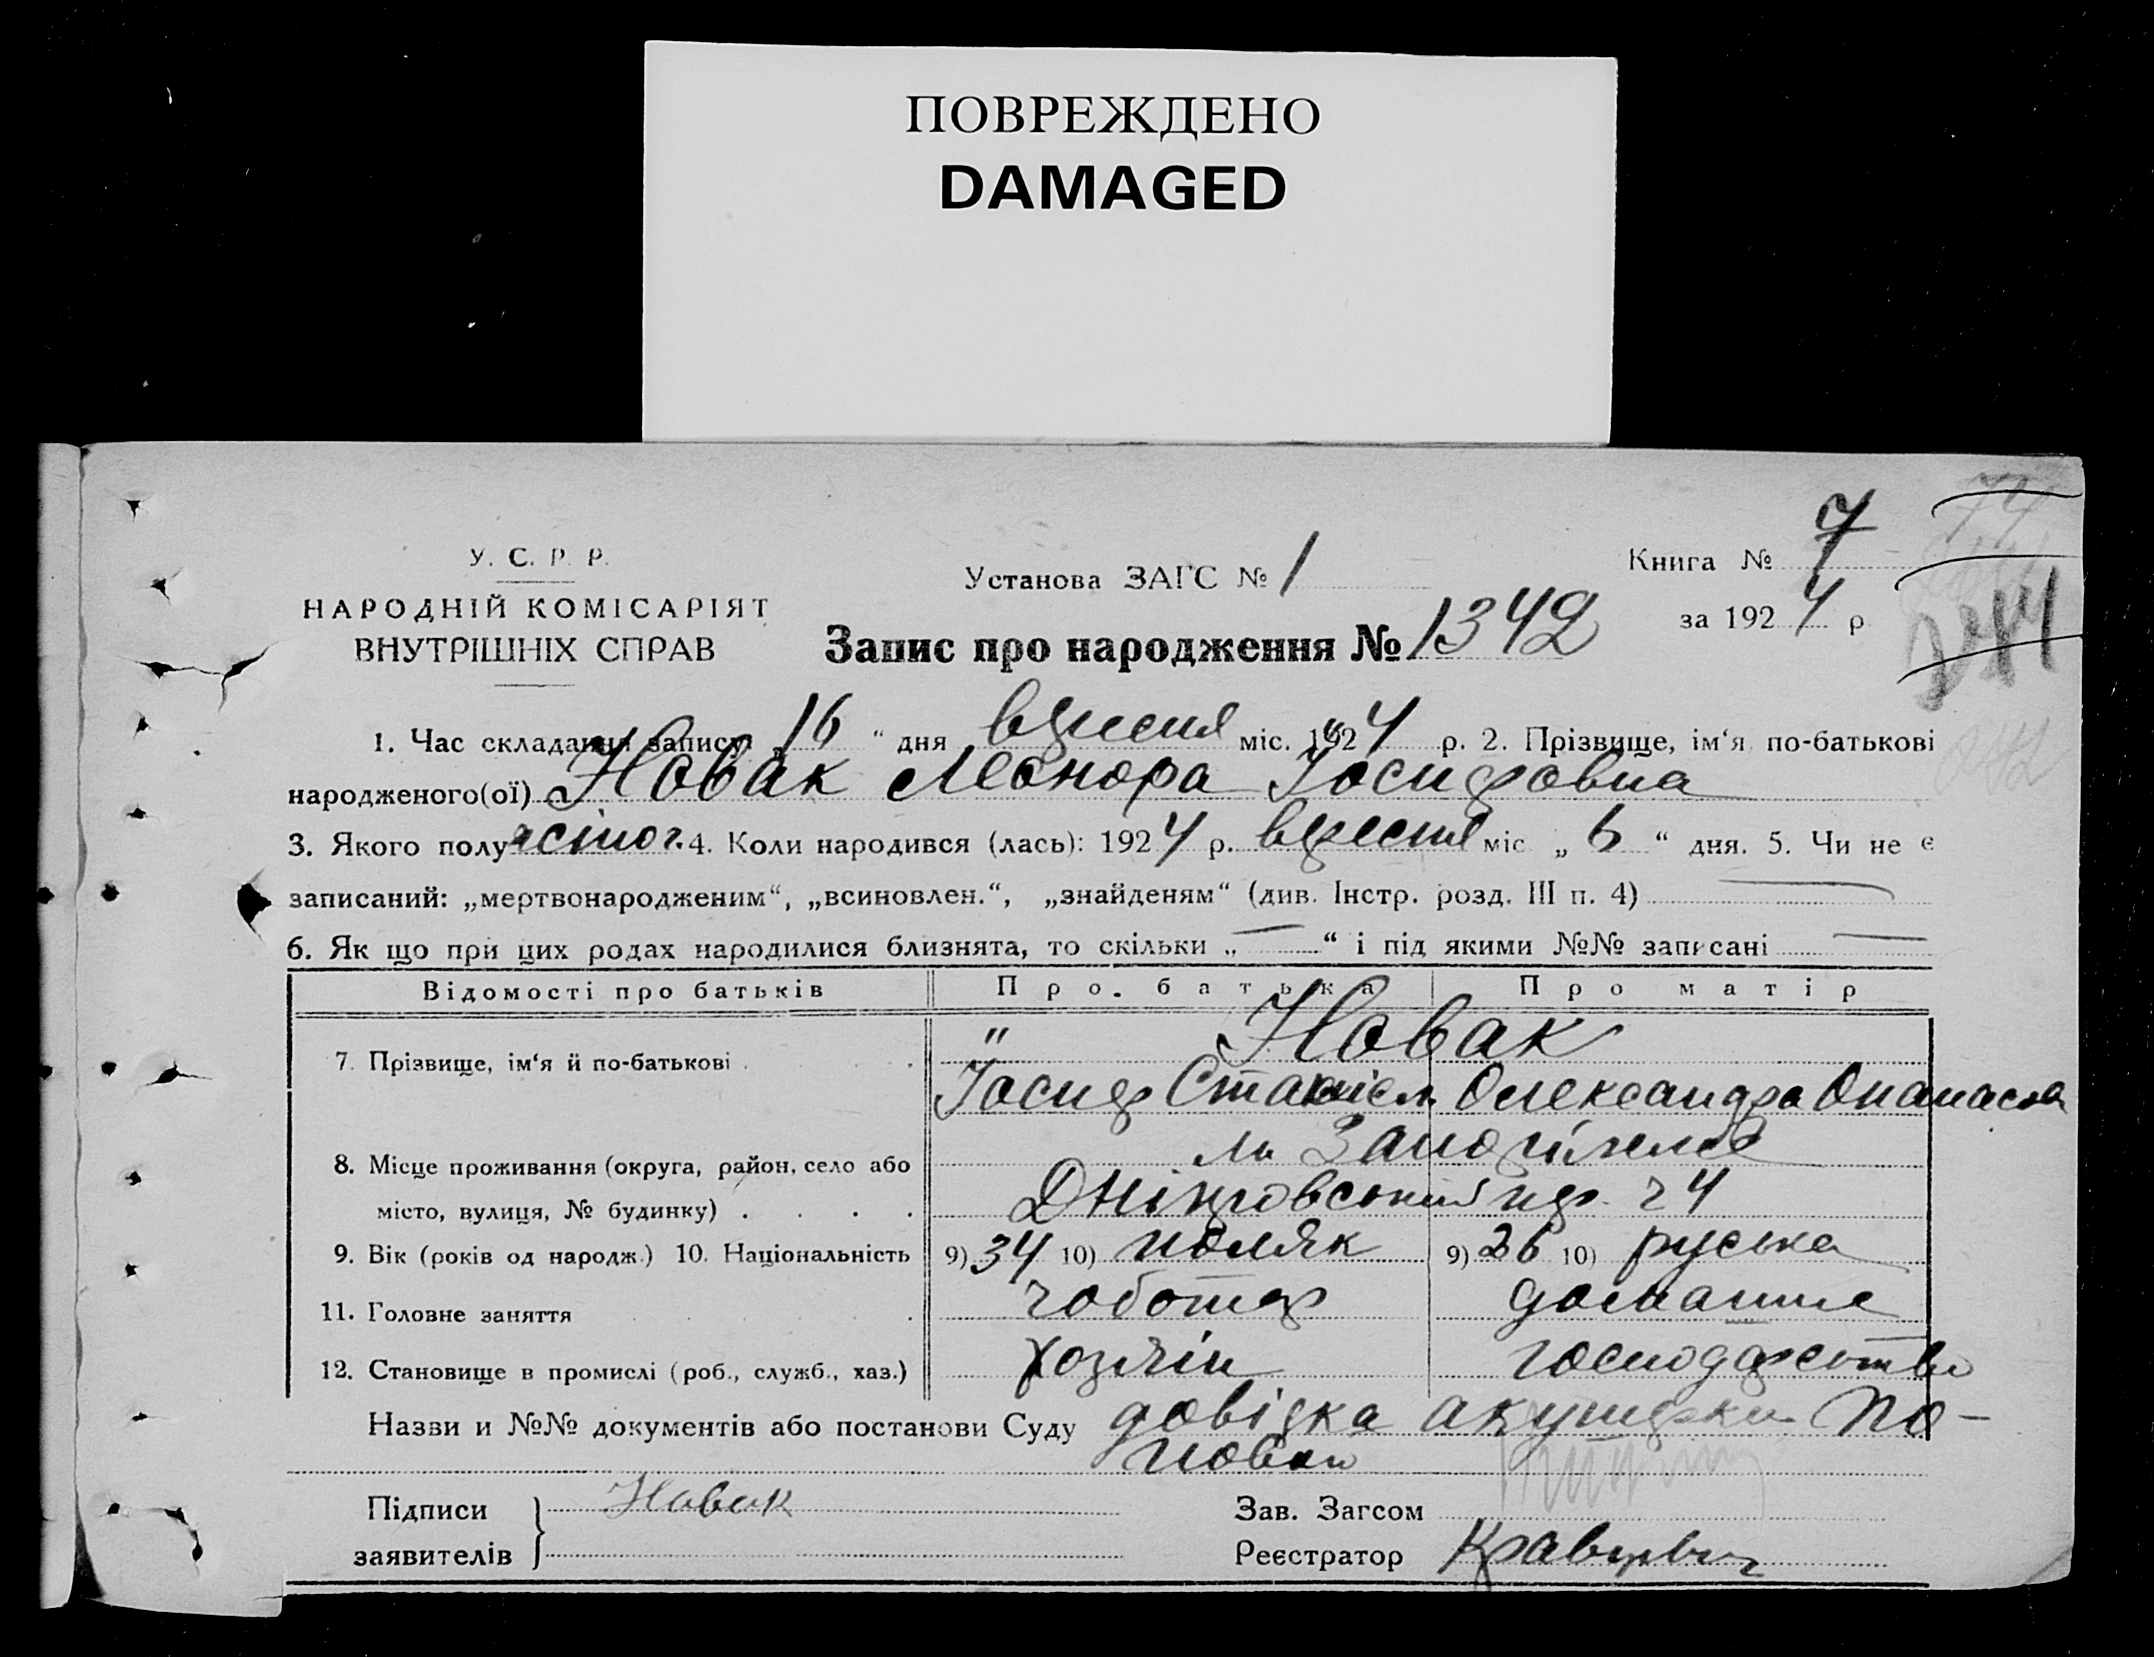 ПОВРЕЖДЕНО
DAMAGED
У. С. Р. Р.
НАРОДНІЙ КОМІСАРІЯТ
ВНУТРІШНІХ СПРАВ
Установа ЗАГС № 1
Книга № 7
за 1924 р
Запис про народження № 1342
1. Час складання запису: „16“ дня вересня міс. 1924 р. 2. Прізвище, ім‘я, по-батькові
народженого(ої) Новак Леонора Іосифовна
3. Якого полу 4. Коли народився (лась): 1924 р. вересня міс „6“ дня. 5. Чи не є
записаний: „мертвонародженим“, „всиновлен.“, „знайденям“ (див. Інстр. розд. III п. 4)
6. Як що при цих родах народилися близнята, то скільки „—“ і під якими №№ записані —
Відомості про батьків Про батька Про матір
7. Прізвище, ім‘я й по-батькові " Новак
Іосиф Станісл. Олександра Опанасов
8. Місце проживання (округа, район, село або м Запоріжжє
місто, вулиця, № будинку) Дніпровський 24
9. Вік (років од народж.) 10. Національність 9) 34 10) поляк 9) 26 10) руська
11. Головне заняття чоботар домашнє
12. Становище в промислі (роб., служб., хаз.) хозяін господарство
Назви и №№ документів або постанови Суду довідка акушерки По-
повой
Підписи Новак Зав. Загсом
заявителів Реєстратор